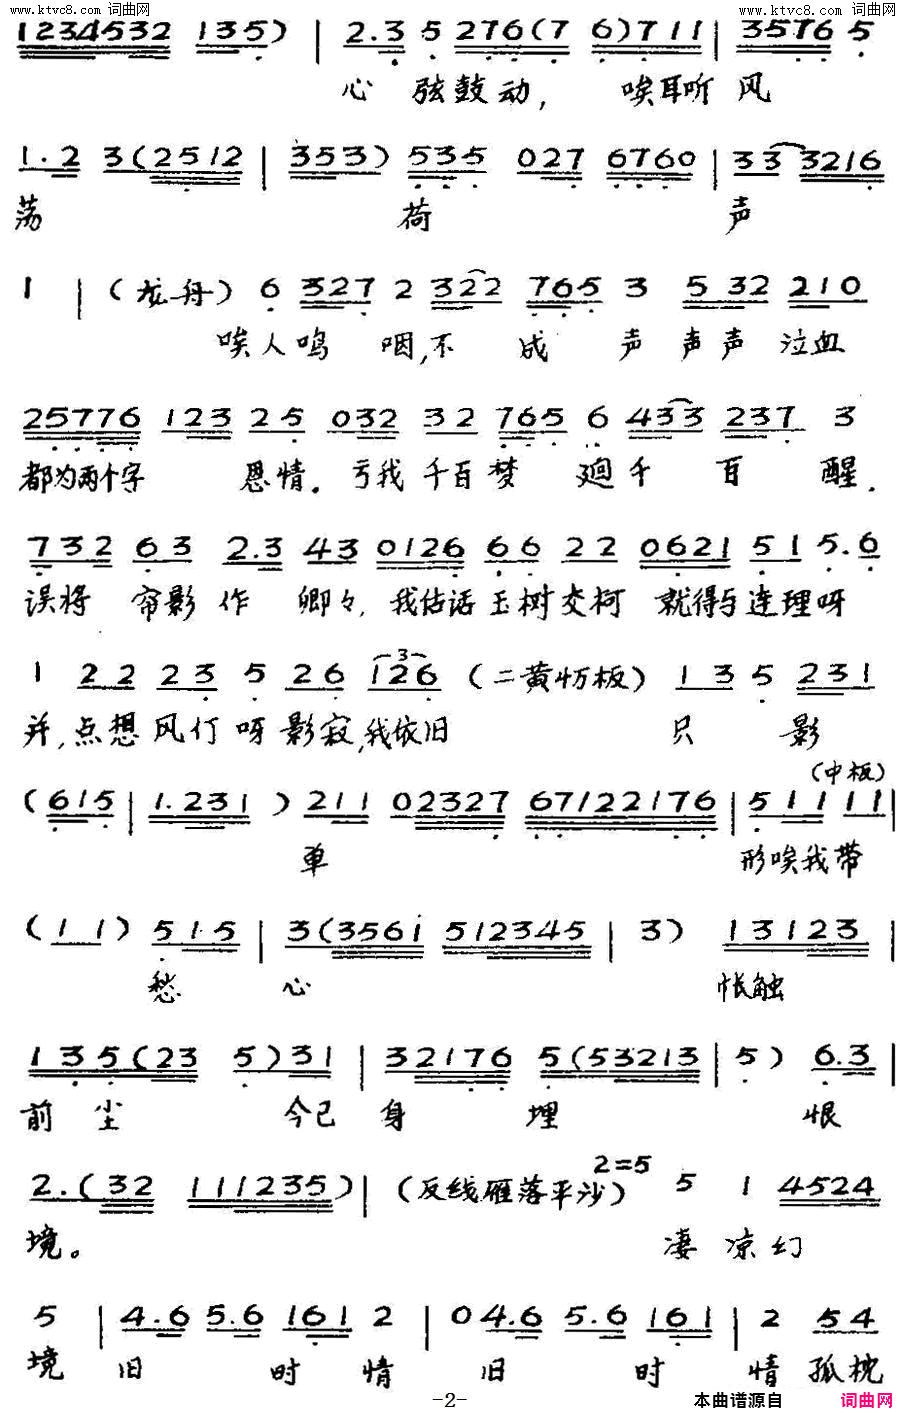 www.ktvc8.com 词曲网 www.ktvc8.com 词曲网
1234532 135) | 2.3 5 276(7 6)711 | 3576 5
心 弦鼓动, 唉耳听风
1.2 3(2512 | 353) 535 027 6760 | 33 3216
荡 荷 声
1 | (龙舟) 6 327 2 322 765 3 5 32 210
唉人鸣 咽,不 成 声 声声 泣血
25776 123 25 032 32 765 6 433 237 3
都为两个字 恩情。亏我千百梦 廻千 百 醒.
732 63 2.3 43 0126 66 22 0621 51 5.6
误将 帘影作 卿々,我估话玉树交柯 就得与连理呀
1 22 23 5 26 3 126 (二黄板) 1 3 5 231
并,点想风灯呀影寂,我依旧 只 影
(中板)
(615 | 1.231 ) 211 02327 67122176 | 5 11 11 |
单 形唉我带
(11) 515 | 3(3561 512345 | 3) 13123 |
愁 心 怅触
135(23 5)31 | 32176 5(53213 | 5) 6.3 |
前尘 今已 身 埋 恨
2.(32 111235) | (反线雁落平沙) 2=5 5 1 4524
境。 凄 凉幻
5 | 4.6 5.6 161 2 | 04.6 5.6 161 | 2 54
境 旧 时 情 旧 时 情 孤枕
-2- 本曲谱源自 词曲网